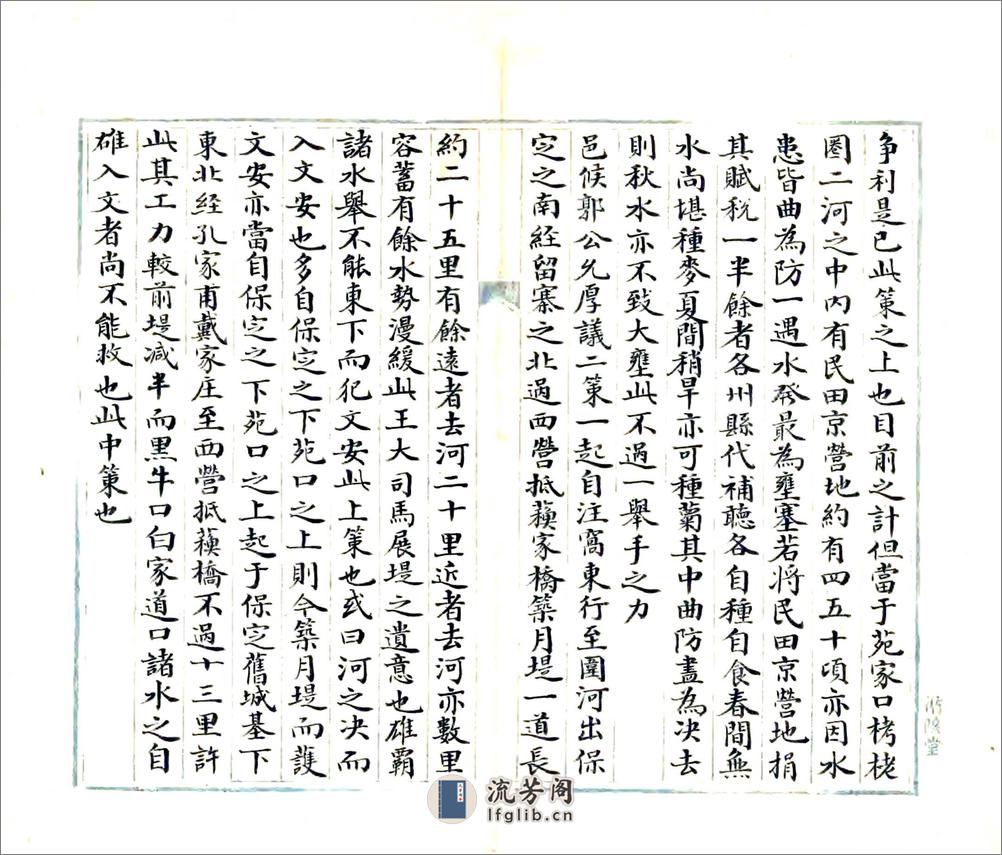 争利是已此策之上也目前之計但當于苑家口栲栳
圏二河之中内有民田京營地約有四五十頃亦因水
患皆曲為防一遇水發最為壅塞若将民田京營地捐
其賦稅一半餘者各州縣代補聽各自種自食春間無
水尚堪種麥夏間稍旱亦可種菊其中曲防盡為决去
則秋水亦不致大壅此不過一舉手之力
邑候郭公允厚議二策一起自注窩東行至圍河出保
定之南經留寨之北過西營抵蘓家橋築月堤一道長
約二十五里有餘遠者去河二十里近者去河亦數里
容蓄有餘水勢漫緩此王大司馬展堤之遺意也雄霸
諸水舉不能東下而犯文安此上策也或曰河之决而
入文安也多自保定之下苑口之上則今築月堤而護
文安亦當自保定之下苑口之上起于保定舊城基下
東北経孔家甫戴家庄至西營抵蘓橋不過十三里許
此其工力較前堤減半而黒牛口白家道口諸水之自
雄入文者尚不能救也此中策也
流芳阁
lfglib.cn